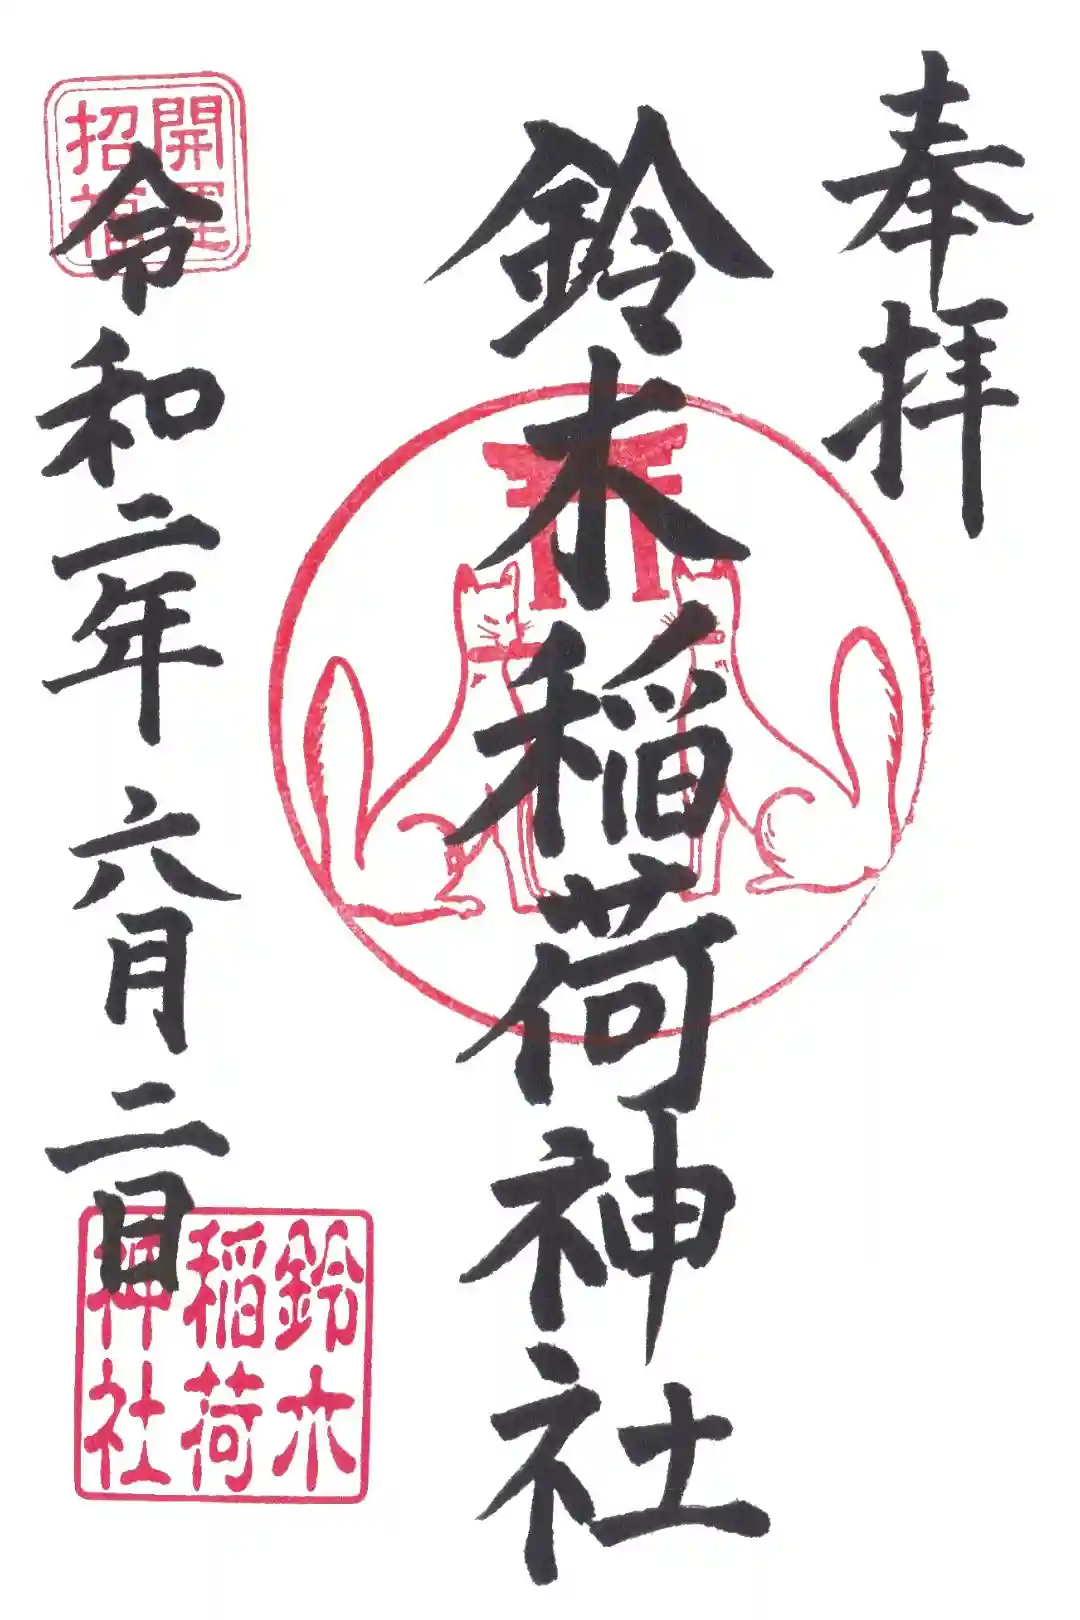 奉拝
鈴木稲荷神社
開運
招福
令和二年六月二日
鈴木
稲荷
神社